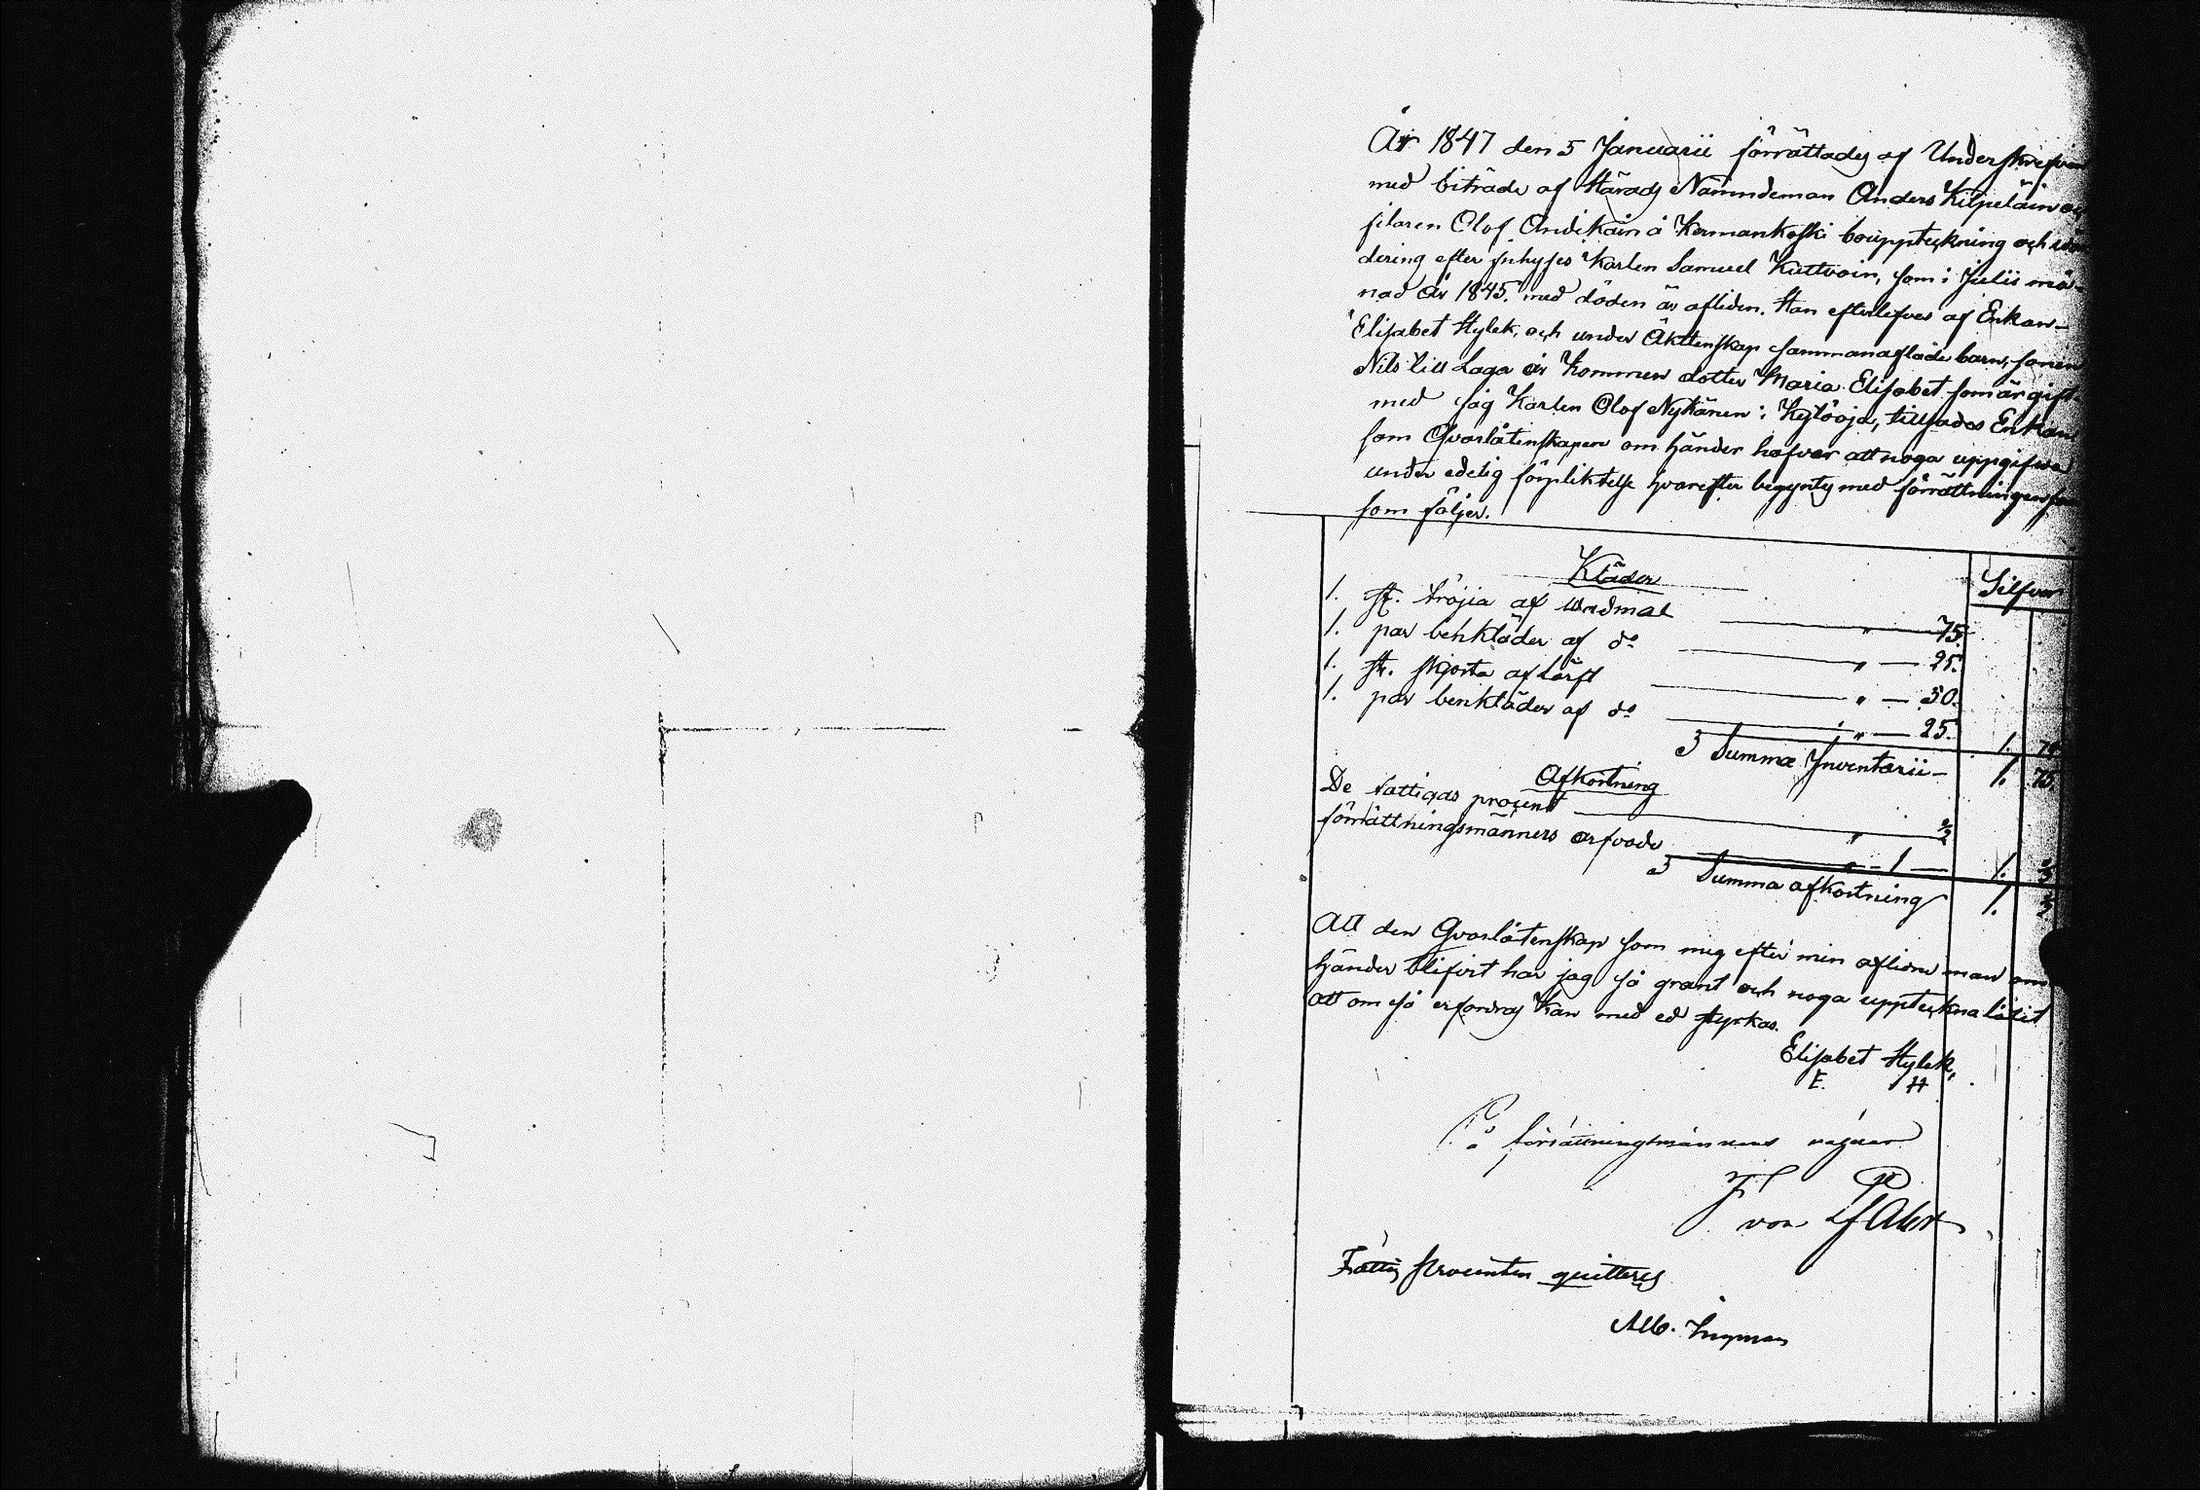 År 1847 den 5 Januarii förrättades af Underskrefven
med biträde af Härads Nämndeman Anders Kilpeläin och
Olof Andikain å Karmankoski bouppteckning och wär-
dering efter inhyses Karlen Samuel Kuttvoin, som i Julii må-
nad år 1845. med döden är afliden. Han efterlefves af Enkan-
Elisabet Hylek, och under Äktenskap sammanaflade barn, sonen
Nils till Laga år Kommen dotter Maria Elisabet som är gift
med Karlen Olof Nykänen i tillsades Enkan
som Qvarlåtenskapen om händer hafver att noga uppgifva
under edelig förpliktelse hvarefter begyntes med förrättningen
som följer.
Silfver
Kläder
1. st. tröjia af wadmal " 75.
1. par benkläder af do " — 25.
1. st. skjorta af Lärft " — 50.
1. par benkläder af do " — 25. 1. 75.
Summa Inventarii — 1. 75.
Afkortning
De fattigas procent "
förrättningsmänners arfvode " - 1 — 1.
Summa afkortning 1.
Att den Qvarlåtenskap som mig efter min aflidne man om
händer blifvit har jag så grant och noga uppteckna låtit
att om så erfordras Kan med ed styrkas.
Elisabet Hylek,
E. H
På förrättningsmännens vägnar
von
Fattig Procenten quitteras